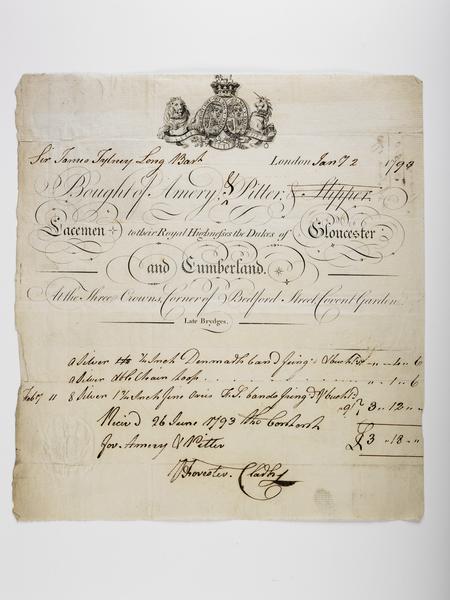 Sir James Tylney Long Bart London Jany. 2 1793
Bought of Amery & Pitter, & Slipper
Lacemen to their Royal Highnesses the Dukes of Gloucester
and Cumberland.
At the Three Crowns, Corner of Bedford Street Covent Garden
Late Brydges.
a Silver Inch Denmark band 4 6
a Silver dble Chain loop 1 6
Feby 11 8 Silver Inch fine bands 9/ 3 12
Recd 26 June 1793 the Contents
for Amery & Pitter
£3 18